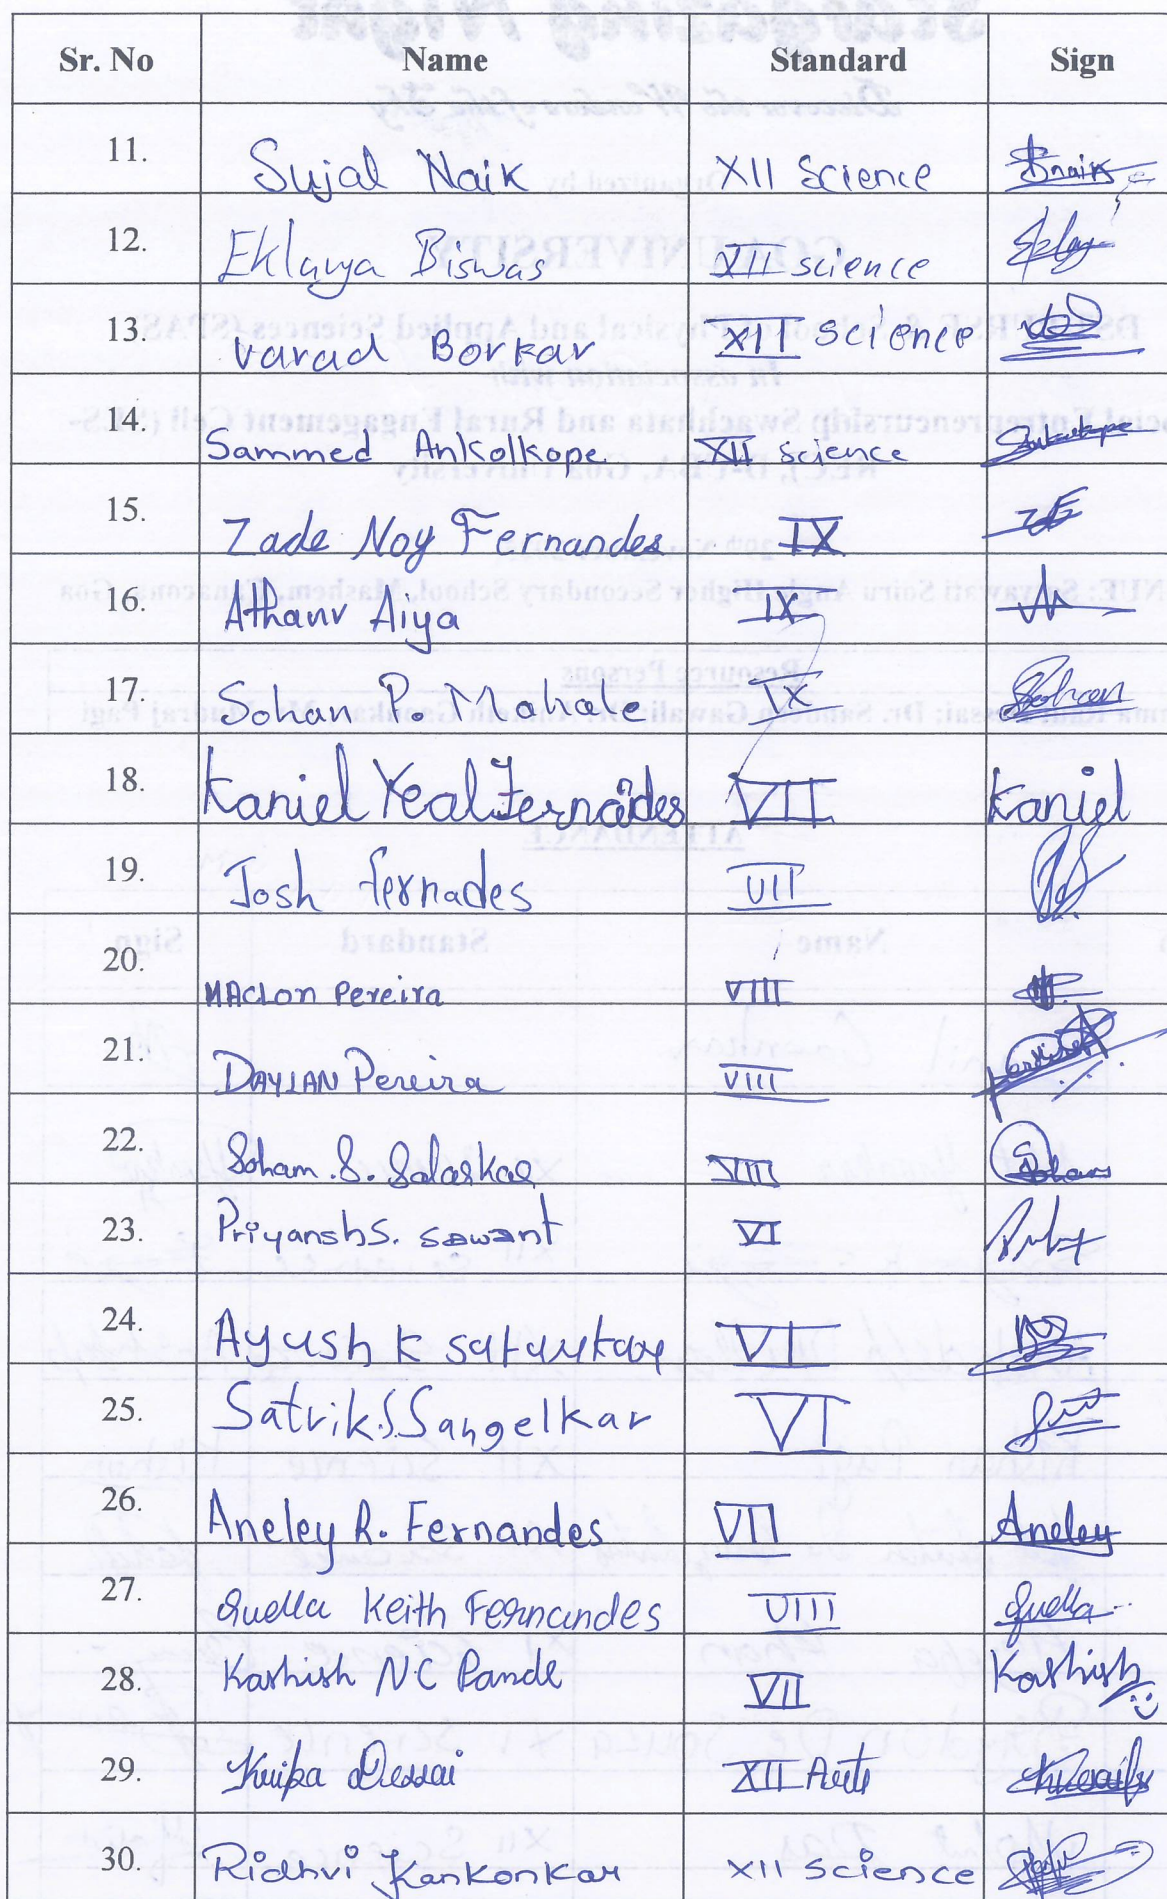 Sr. No Name Standard Sign
11. Sujal Naik XII Science
12. Eklavya Biswas XII science
13. Varad Borkar XII Science
14. Sammed Ankolkope XII science
15. Zade Noy Fernandes IX
16. Atharv Aiya IX
17. Sohan P. Mahale IX Sohan
18. Kaniel Yeal Fernandes VII Kaniel
19. Josh fernades VII
20. MAClon Pereira VIII
21. DAYLAN Pereira VIII
22. Soham .S. Salaskar VIII Soham
23. Priyansh S. sawant VI
24. Ayush K satarkar VI
25. Satvik.S.Sangelkar VI
26. Aneley R. Fernandes VII Aneley
27. Quella Keith Fernandes VIII Quella
28. Kashish NC Pande VII Kashish
29. Krupa Dessai XII Arts
30. Ridhvi Kankonkar XII Science